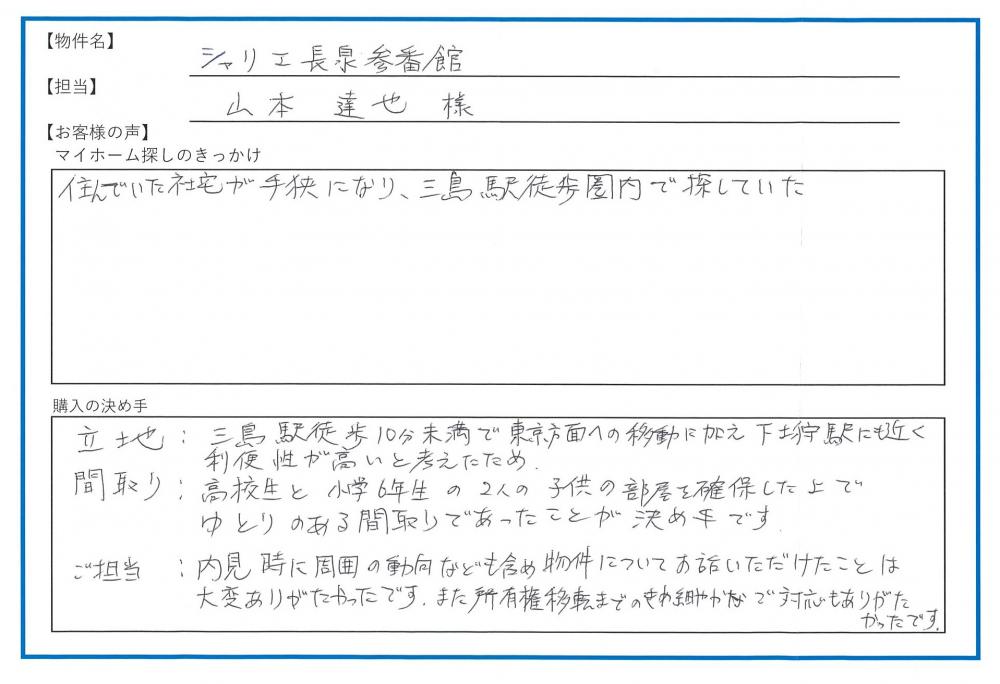 【物件名】
シャリエ長泉参番館
【担当】
山本 達也 様
【お客様の声】
マイホーム探しのきっかけ
住んでいた社宅が手狭になり、三島駅徒歩圏内で探していた
購入の決め手
立地：三島駅徒歩10分未満で東京方面への移動に加え下土狩駅にも近く
利便性が高いと考えたため.
間取り：高校生と小学6年生の2人の子供の部屋を確保した上で
ゆとりのある間取りであったことが決め手です.
ご担当：内見時に周囲の動向なども含め物件についてお話いただけたことは
大変ありがたかったです.また所有権移転までのきめ細やかなご対応もありがた
かったです.